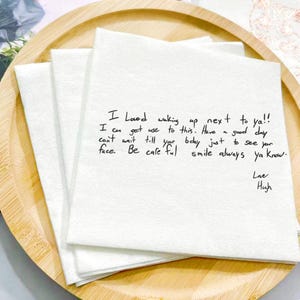 I Loved waking up next to ya!!
I can get use to this. Have a good day
can't wait till your baby just to see your
face. Be care ful smile always ya know.
Love
High